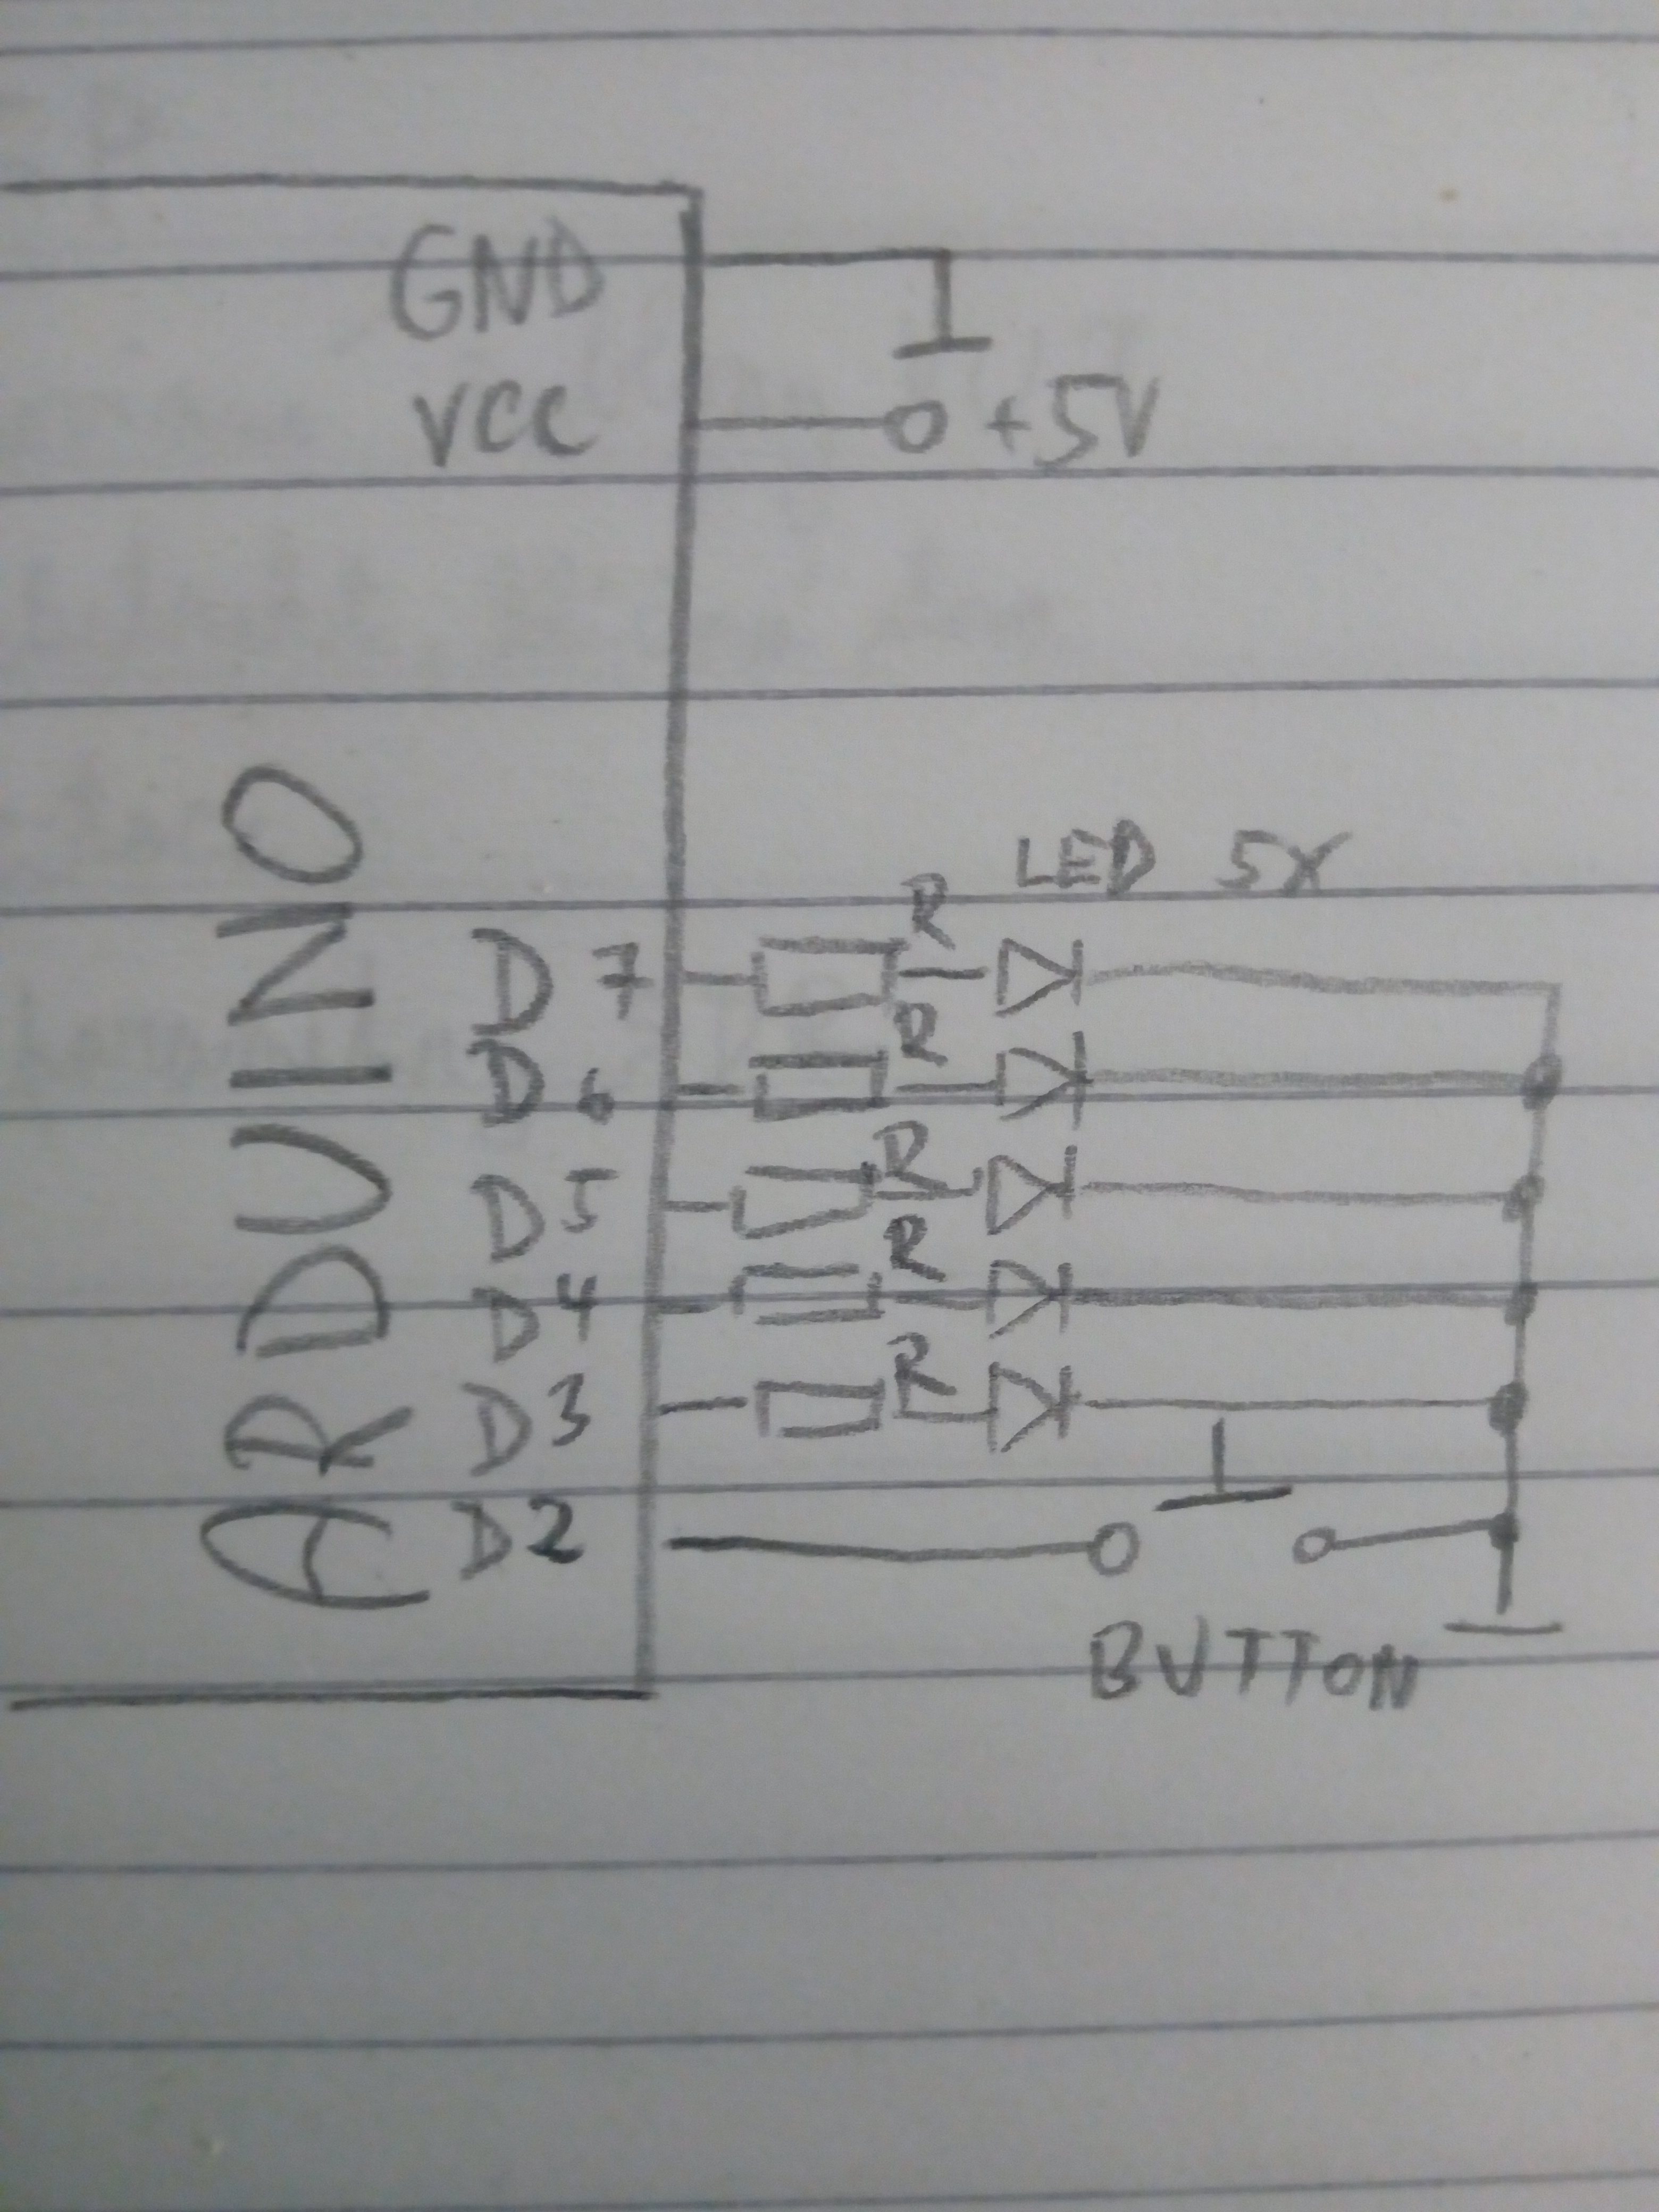 GND
VCC
+5V
ARDUINO
LED 5X
R
D7
R
D6
R
D5
R
D4
R
D3
D2
BUTTON